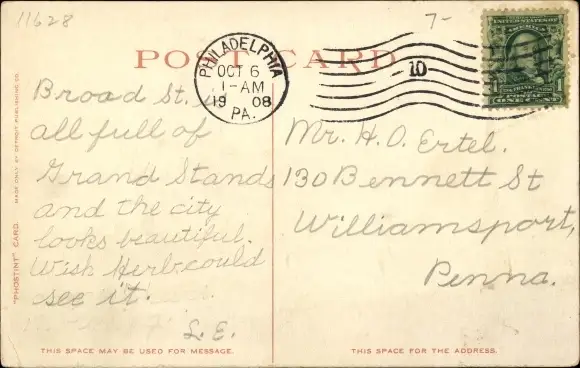 11628
7-
POST CARD
PHILADELPHIA
OCT 6
1-AM
1908
PA.
10
UNITED STATES OF
AMERICA
POSTAGE
ONE CENT
Broad St. is
all full of
Grand Stands
and the city
looks beautiful.
Wish Herb. could
see it.
L. E.
Mr. H. O. Ertel.
130 Bennett St
Williamsport,
Penna.
"PHOSTINT" CARD.
MADE ONLY BY DETROIT PUBLISHING CO.
THIS SPACE MAY BE USED FOR MESSAGE.
THIS SPACE FOR THE ADDRESS.